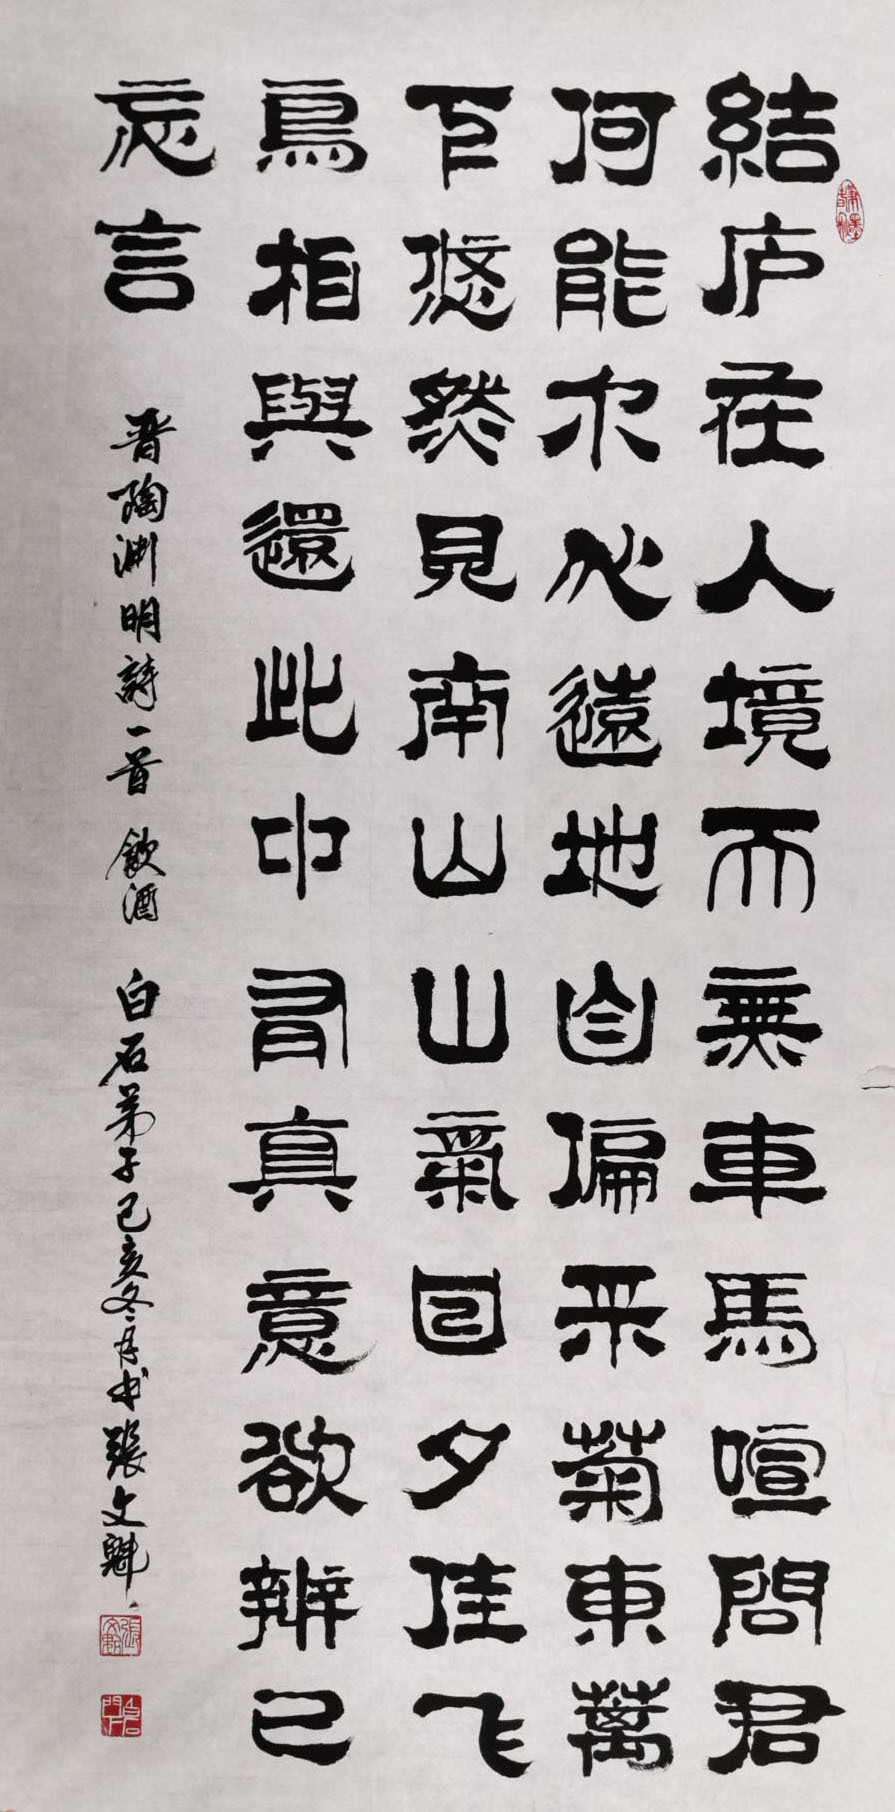 結庐在人境而無車馬喧問君
何能尔心遠地自偏采菊東蓠
下悠然見南山山氣日夕佳飞
鳥相與還此中有真意欲辨已
忘言
晋陶渊明詩一首 飲酒 白石弟子己亥冬月书張文魁